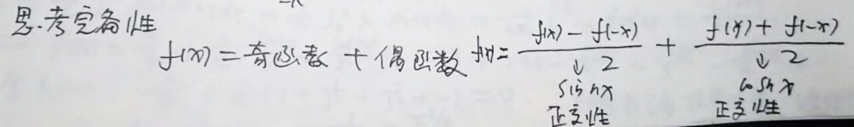 思考完备性
f(x) = 奇函数 + 偶函数 f(x) = \frac{f(x) - f(-x)}{2} + \frac{f(x) + f(-x)}{2}
↓ ↓
sin nx cosnx
正交性 正交性